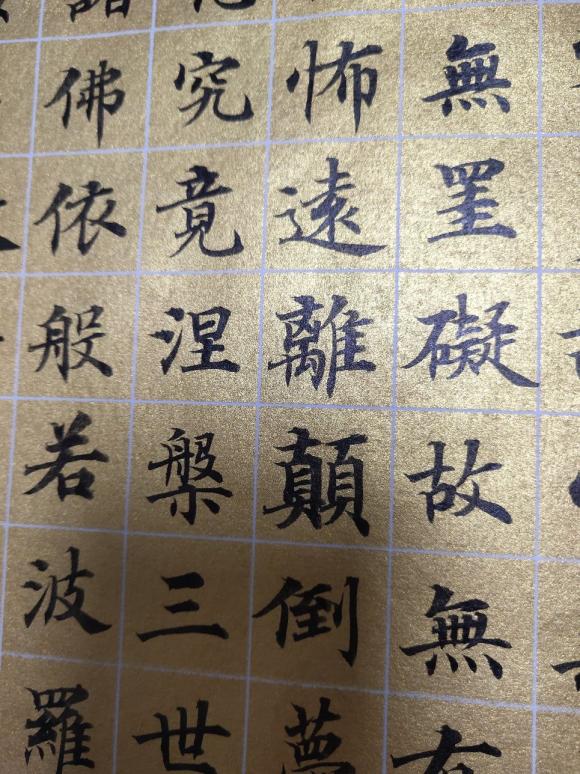 無罣礙故無有
怖遠離顛倒夢
究竟涅槃三世
諸佛依般若波羅